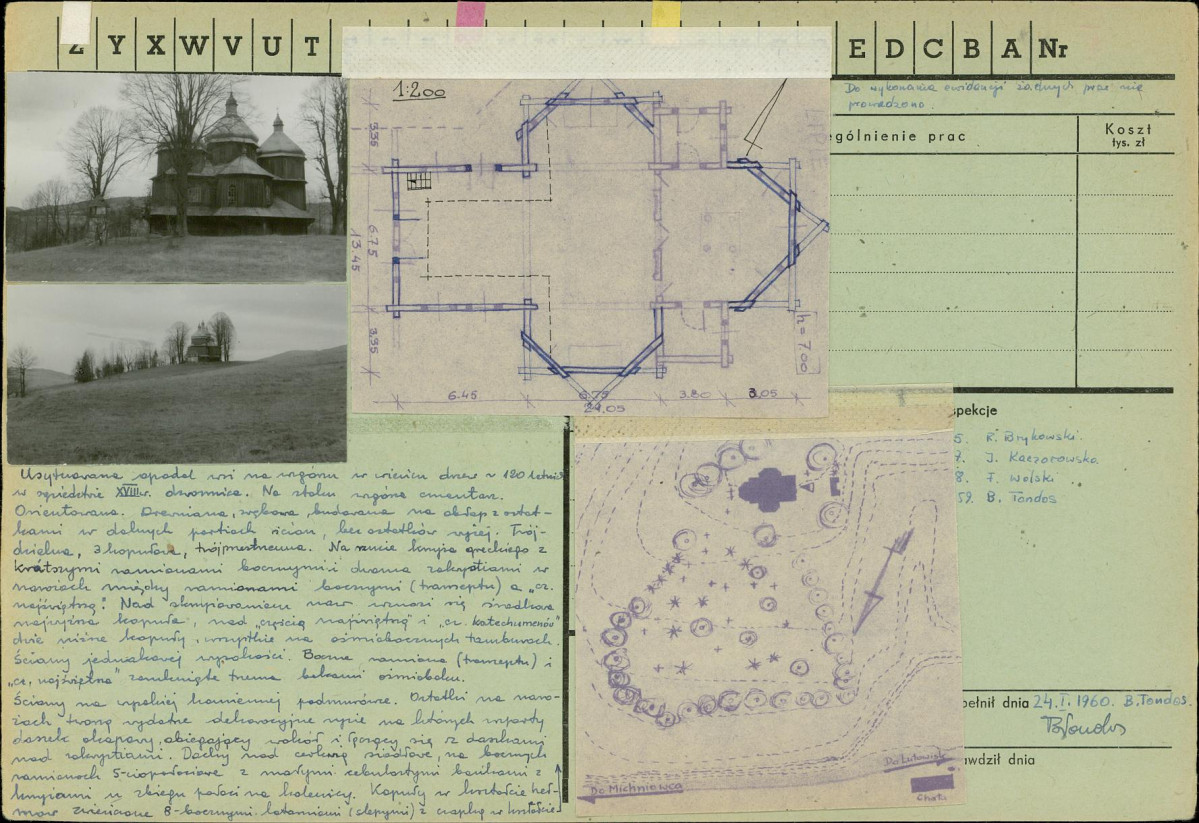 Z Y X W V U T E D C B A Nr
Do wykonania ewidencji żadnych prac nie
prowadzono.
ególnienie prac
Koszt
tys. zł
1:200
3.35
6.75
13.45
3.35
h = 7.00
6.45 6.75 3.80 3.05
21,05
spekcje
5. R. Brykowski.
7. J. Kaczorowska.
8. F. Wolski
59. B. Tondos
Usytuowana opodal wsi na wzgórzu w wieńcu drzew ~ 120 letnich
w sąsiedztwie XVIII w. dzwonnicy. Na stoku wzgórza cmentarz.
Orientowana. Drewniana, zrębowa, budowana na obłap z ostat-
kami w dolnych partiach ścian, bez ostatków wyżej. Trój-
dzielna, 3 kopułowa, trójprzestrzenna. Na rzucie krzyża greckiego z
krótszymi ramionami bocznymi i dwoma zakrystiami w
narożach między ramionami bocznymi (transeptu) a „cz.
najświętszą". Nad skrzyżowaniem naw wznosi się środkowa
najwyższa kopuła, nad „częścią najświętszą" i „cz. katechumenów"
dwie niższe kopuły, wszystkie na ośmiobocznych tamburach.
Ściany jednakowej wysokości. Boczne ramiona (transeptu) i
„cz. najświętsza" zamknięte trzema bokami ośmioboku.
Ściany na wysokiej kamiennej podmurówce. Ostatki na naro-
żach tworzą wydatne dekoracyjne rysie na których wsparty
daszek okapowy, obiegający wokół i łączący się z daszkami
nad zakrystiami. Dachy nad cerkwią siodłowe, na bocznych
ramionach 5-cio połaciowe z małymi cebulastymi bańkami z
krzyżami u zbiegu połaci na kalenicy. Kopuły w kształcie heł-
mów zwieńczone 8-bocznymi latarniami (ślepymi) z czapką w kształcie
Do Michniowca
Do Lutowisk
Chata
pełnił dnia 24.I.1960. B.Tondos.
BTondos
awdził dnia